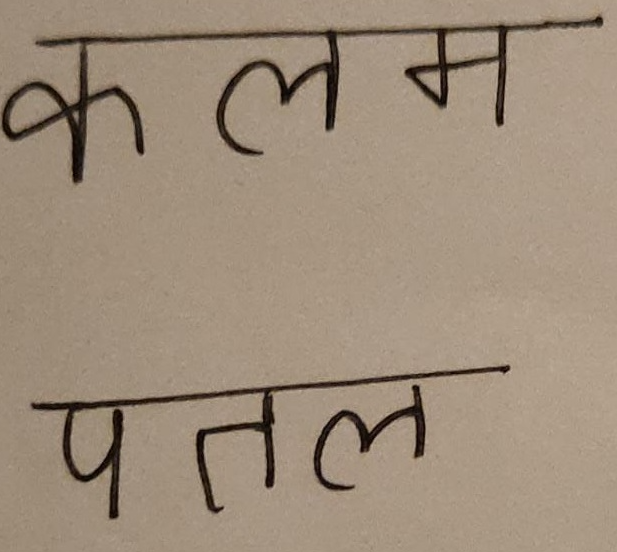 कलम
पतल